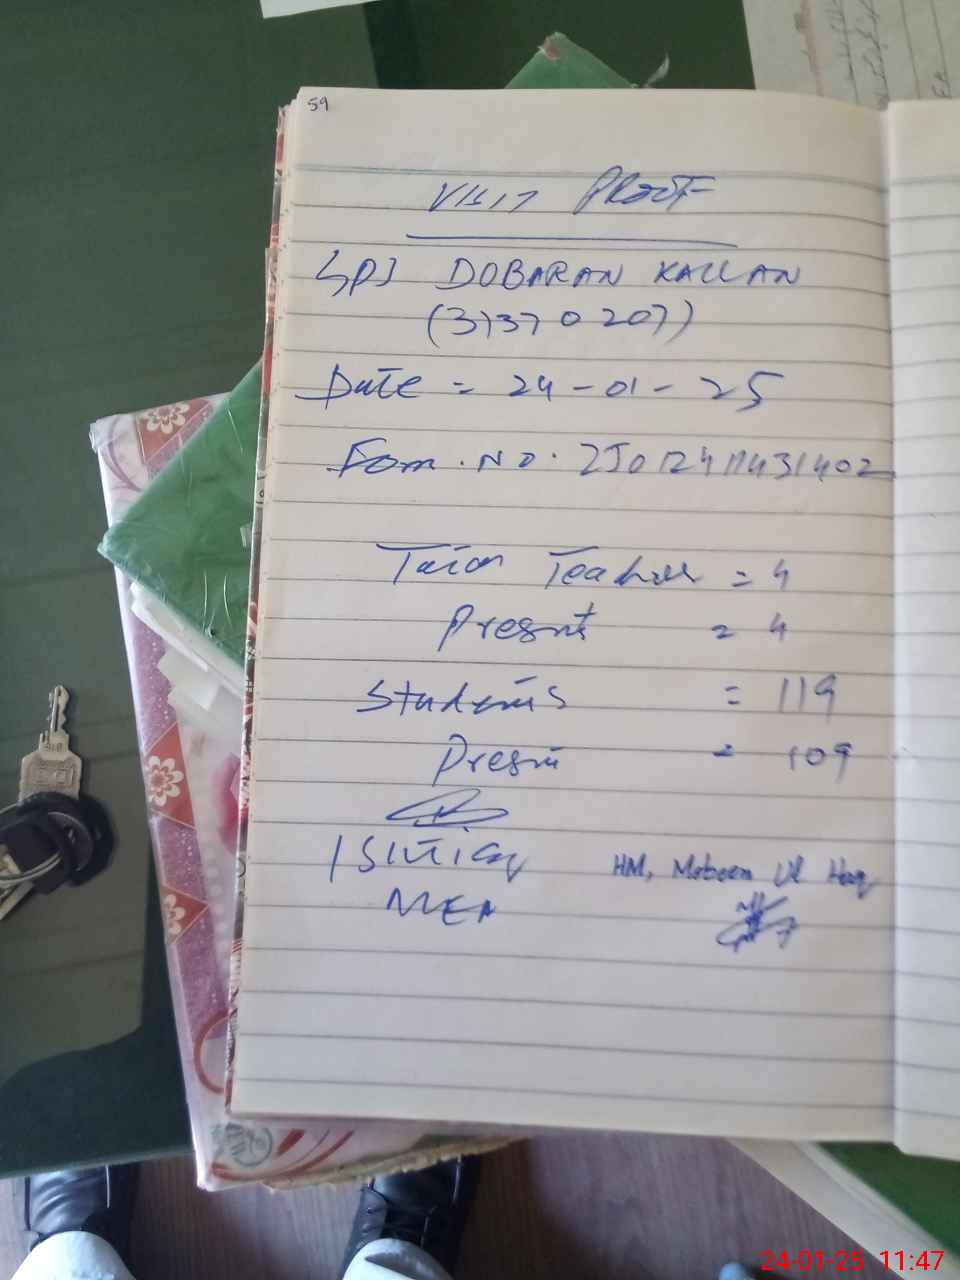 59
VISIT PROOF
DOBARAN KALLAN
(37370207)
Date = 24-01-25
Form.NO. 25012411431402
Teacher = 4
Present = 4
Students = 119
Present = 109
MEA
HM, Mobeen Ul Haq
24-01-25 11:47